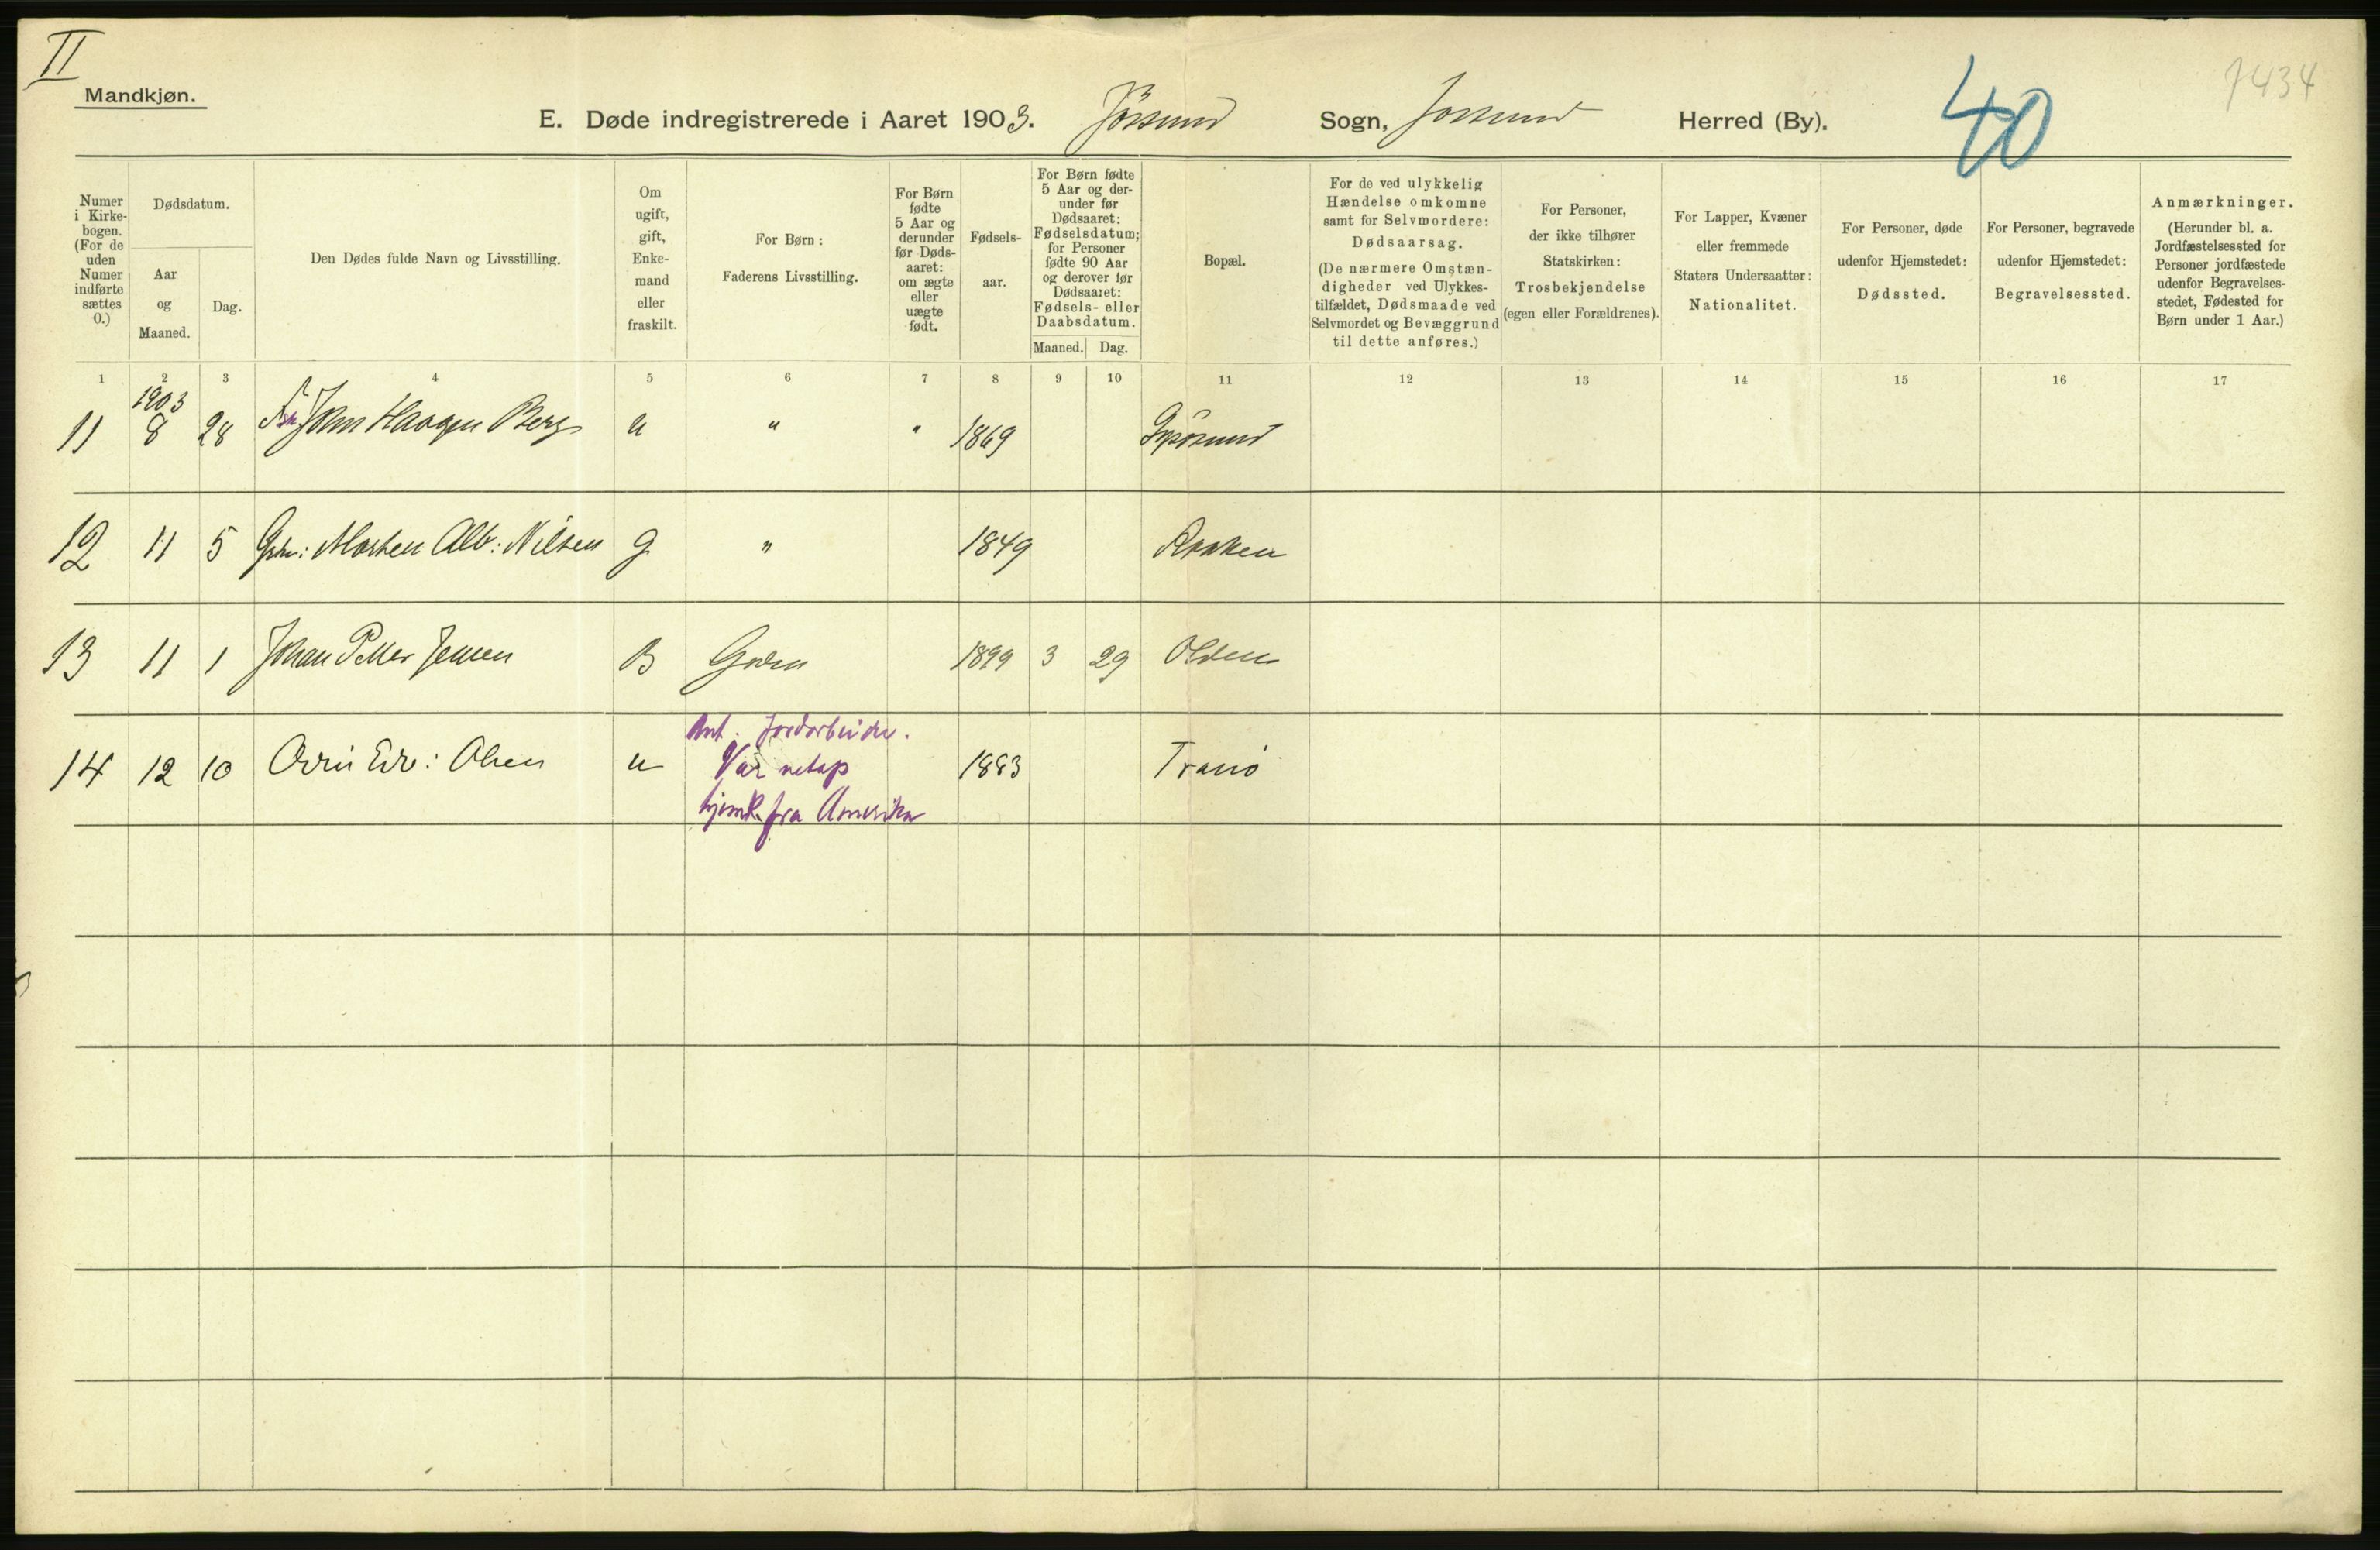 II
7434
40
Mandkjøn.
E. Døde indregistrerede i Aaret 1903. Jøssund Sogn, Jøssund Herred (By).
Numer i Kirke- bogen. (For de uden Numer indførte sættes 0.)
Dødsdatum.
Aar og Maaned.
Dag.
Den Dødes fulde Navn og Livsstilling.
Om ugift, gift, Enke- mand eller fraskilt.
For Børn: Faderens Livsstilling.
For Børn fødte 5 Aar og derunder før Døds- aaret: om ægte eller uægte født.
Fødsels- aar.
For Børn fødte 5 Aar og der- under før Dødsaaret: Fødselsdatum; for Personer fødte 90 Aar og derover før Dødsaaret: Fødsels- eller Daabsdatum.
Maaned. Dag.
Bopæl.
For de ved ulykkelig Hændelse omkomne samt for Selvmordere: Dødsaarsag. (De nærmere Omstæn- digheder ved Ulykkes- tilfældet, Dødsmaade ved Selvmordet og Bevæggrund til dette anføres.)
For Personer, der ikke tilhører Statskirken: Trosbekjendelse (egen eller Forældrenes).
For Lapper, Kvæner eller fremmede Staters Undersaatter: Nationalitet.
For Personer, døde udenfor Hjemstedet: Dødssted.
For Personer, begravede udenfor Hjemstedet: Begravelsessted.
Anmærkninger. (Herunder bl. a. Jordfæstelsessted for Personer jordfæstede udenfor Begravelses- stedet, Fødested for Børn under 1 Aar.)
1 2 3 4 5 6 7 8 9 10 11 12 13 14 15 16 17
1903
11 8 28 John Haagen Berg u " " 1869
12 11 5 Grdm: Morten Alb: Nilsen g " 1849
13 11 1 Johan Petter Jensen B Grdm 1899 3 29 Olden
Ant. Jordarbeider.
14 12 10 Edv: Olsen u Var netop 1883 Tranø
hjemk. fra Amerika